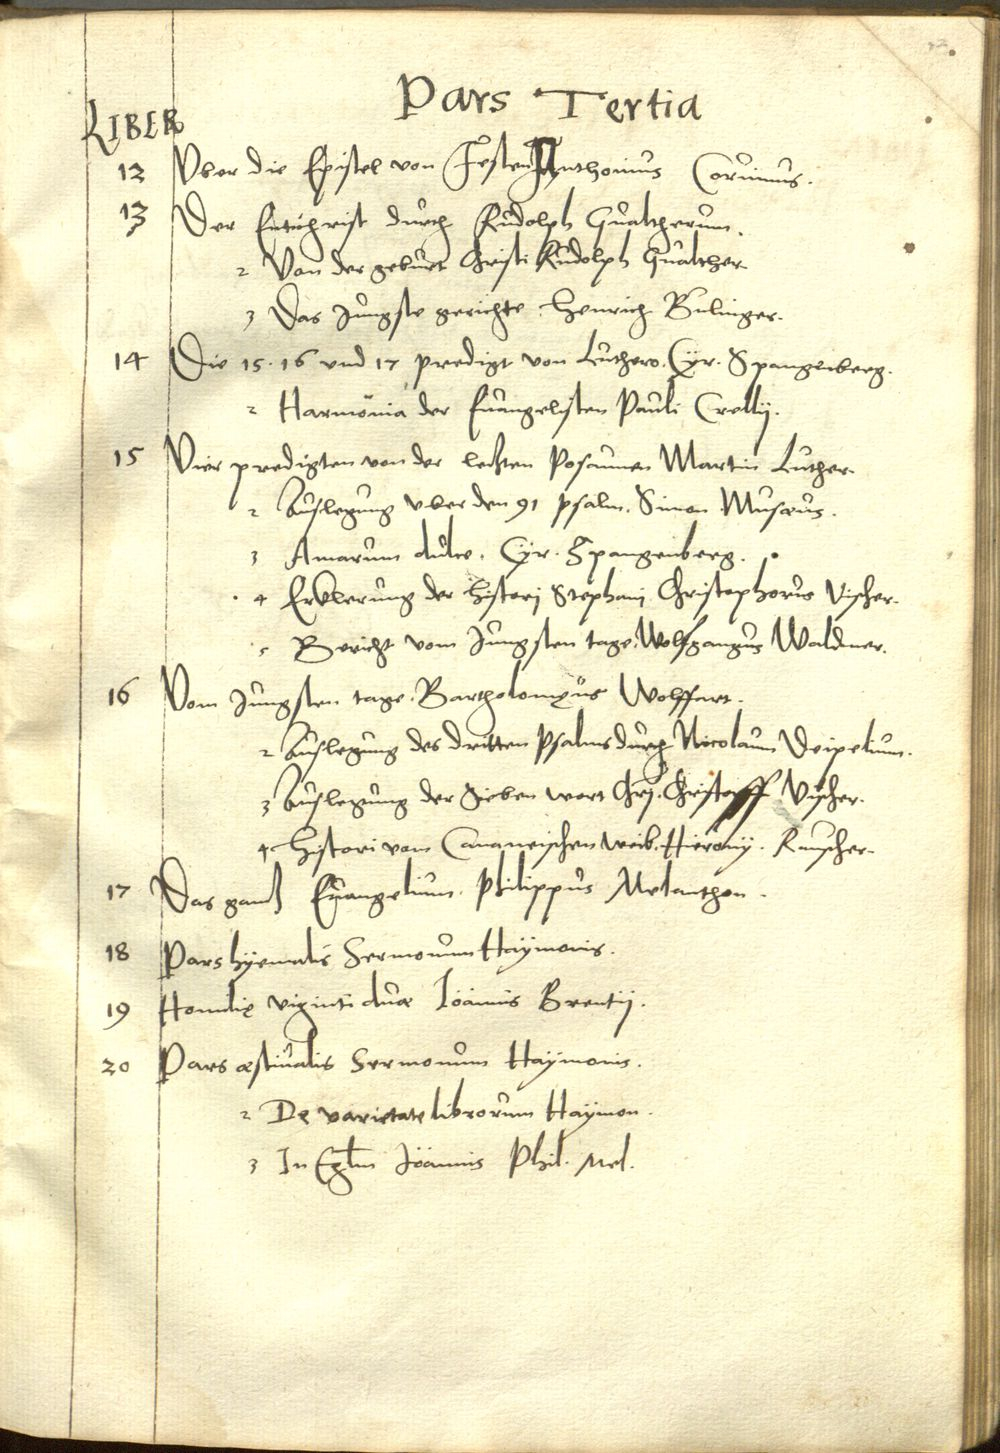 Pars Tertia
LIBER
12 Vber die Epistel von Festen Anthonius Corvinus.
13 Der Entichrist durch Rudolph Gualtherum.
2 Von der geburt Christi Rudolph Gualther
3 Das Jungste gerichte. Henrich Bulinger.
14 Die 15. 16 vnd 17 predigt von Luthero. Cyr. Spangenberg.
2 Harmonia der Euangelisten Pauli Crellij.
15 Vier predigten von der letzten Posaunen Martin Luther.
2 Auslegung vber den 91 psalm. Simon Musæus.
3 Amarum dulce. Cyr. Spangenberg.
4 Erklerung der histori Stephani Christophorus Vischer.
5 Bericht vom Jungsten tage. Wolfgangus Waldner.
16 Vom Jungsten tage. Bartholomęus Wolffart.
2 Auslegung des dritten Psalms durch Nicolaum
3 Auslegung der Sieben wort Chrj. Christoff Vischer.
4 Histori vom Cananeischen weib. Hierony. Rauscher.
17 Das gantz Euangelium. Philippus Melanthon.
18 Pars hyemalis Sermonum Haymonis.
19 Homilię viginti duæ Ioannis Brentij.
20 Pars æstiualis Sermonum Haymonis.
2 De varietate librorum Haymon.
3 In Eglm Joannis Phil. Mel.